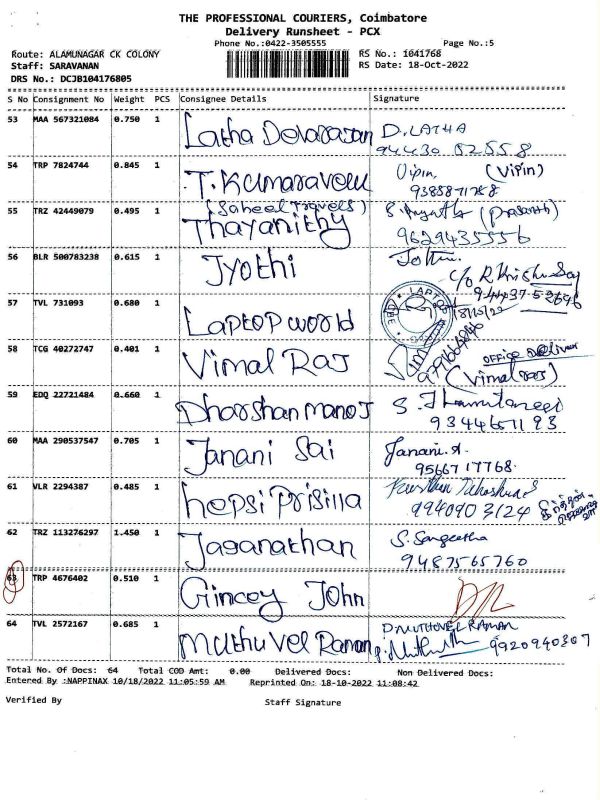 THE PROFESSIONAL COURIERS, Coimbatore
Delivery Runsheet - PCX
Phone No.:0422-3505555 Page No.:5
Route: ALAMUNAGAR CK COLONY RS No.: 1041768
Staff: SARAVANAN RS Date: 18-Oct-2022
DRS No.: DCJB104176805
S No Consignment No Weight PCS Consignee Details Signature
53 MAA 567321084 0.750 1 Latha Devarasan D. LATHA
94430 52558
54 TRP 7824744 0.845 1 T. Kumaravelu Vipin (Vipin)
9385871788
55 TRZ 42449079 0.495 1 (Saheel Travels)
Thayanithy (Prasanth)
9629435556
56 BLR 500783238 0.615 1 Jyothi
C/o R
94437-52696
57 TVL 731093 0.680 1 Laptop world
58 TCG 40272747 0.401 1 Vimal Raj office Deliver
(Vimal raj)
59 EDQ 22721484 0.660 1 Dharshan Manoj
9344651193
60 MAA 290537547 0.705 1 Janani Sai Janani.A.
9566717768.
61 VLR 2294387 0.485 1 hepsi Prisilla
9940903124
62 TRZ 113276297 1.450 1 Jaganathan S. Sangeetha
9487565760
63 TRP 4676402 0.510 1 Gincey John
64 TVL 2572167 0.685 1 Muthuvel Raman D. MUTHUVEL RAMAN
9920940307
Total No. Of Docs: 64 Total COD Amt: 0.00 Delivered Docs: Non Delivered Docs:
Entered By :NAPPINAX 10/18/2022 11:05:59 AM Reprinted On: 18-10-2022 11:08:42
Verified By Staff Signature